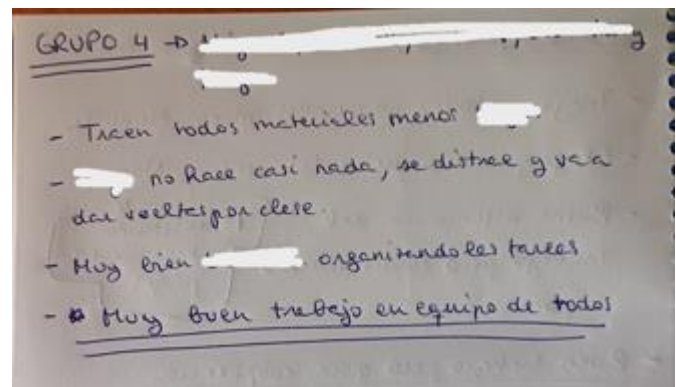 GRUPO 4 → y
- Traen todos materiales menos
- no hace casi nada, se distrae y va a
dar vueltas por clase.
- Muy bien organizando las tareas
- Muy buen trabajo en equipo de todos